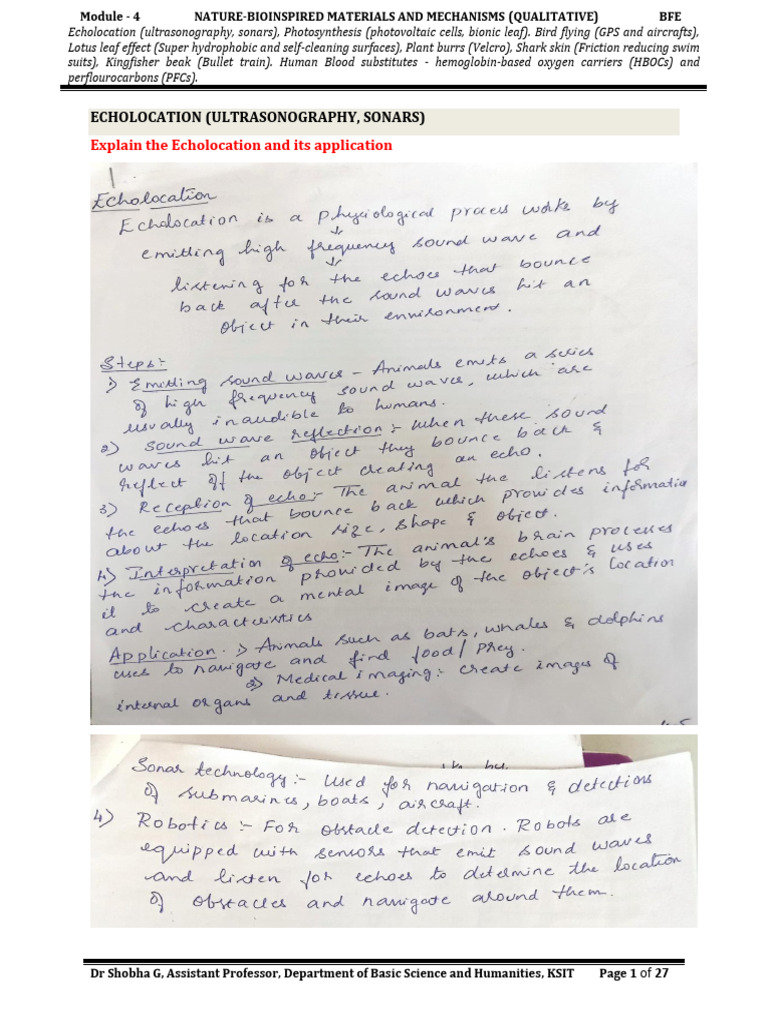 Module - 4 NATURE-BIOINSPIRED MATERIALS AND MECHANISMS (QUALITATIVE) BFE
Echolocation (ultrasonography, sonars), Photosynthesis (photovoltaic cells, bionic leaf). Bird flying (GPS and aircrafts),
Lotus leaf effect (Super hydrophobic and self-cleaning surfaces), Plant burrs (Velcro), Shark skin (Friction reducing swim
suits), Kingfisher beak (Bullet train). Human Blood substitutes - hemoglobin-based oxygen carriers (HBOCs) and
perflourocarbons (PFCs).
ECHOLOCATION (ULTRASONOGRAPHY, SONARS)
Explain the Echolocation and its application
Echolocation
Echolocation is a physiological process works by
emitting high frequency sound wave and
listening for the echoes that bounce
back after the sound waves hit an
object in their environment.
Steps:-
1) Emitting sound waves - Animals emits a series
of high frequency sound waves, which are
usually inaudible to humans.
2) Sound wave reflection:- When these sound
waves hit an object they bounce back &
reflect of the object creating an echo.
3) Reception of echo:- The animal the listens for
the echoes that bounce back which provides informatio
about the location size, shape & object.
4) Interpretation of echo:- The animal's brain processes
the information provided by the echoes & uses
it to create a mental image of the object's location
and characteristics
Application. 1) Animals such as bats, whales & dolphins
uses to navigate and find food/prey.
2) Medical imaging:- create images of
internal organs and tissue.
Sonar technology:- Used for navigation & detections
of submarines, boats, aircraft.
4) Robotics:- For obstacle detection. Robots are
equipped with sensors that emit sound waves
and listen for echoes to determine the location
of obstacles and navigate around them.
Dr Shobha G, Assistant Professor, Department of Basic Science and Humanities, KSIT Page 1 of 27